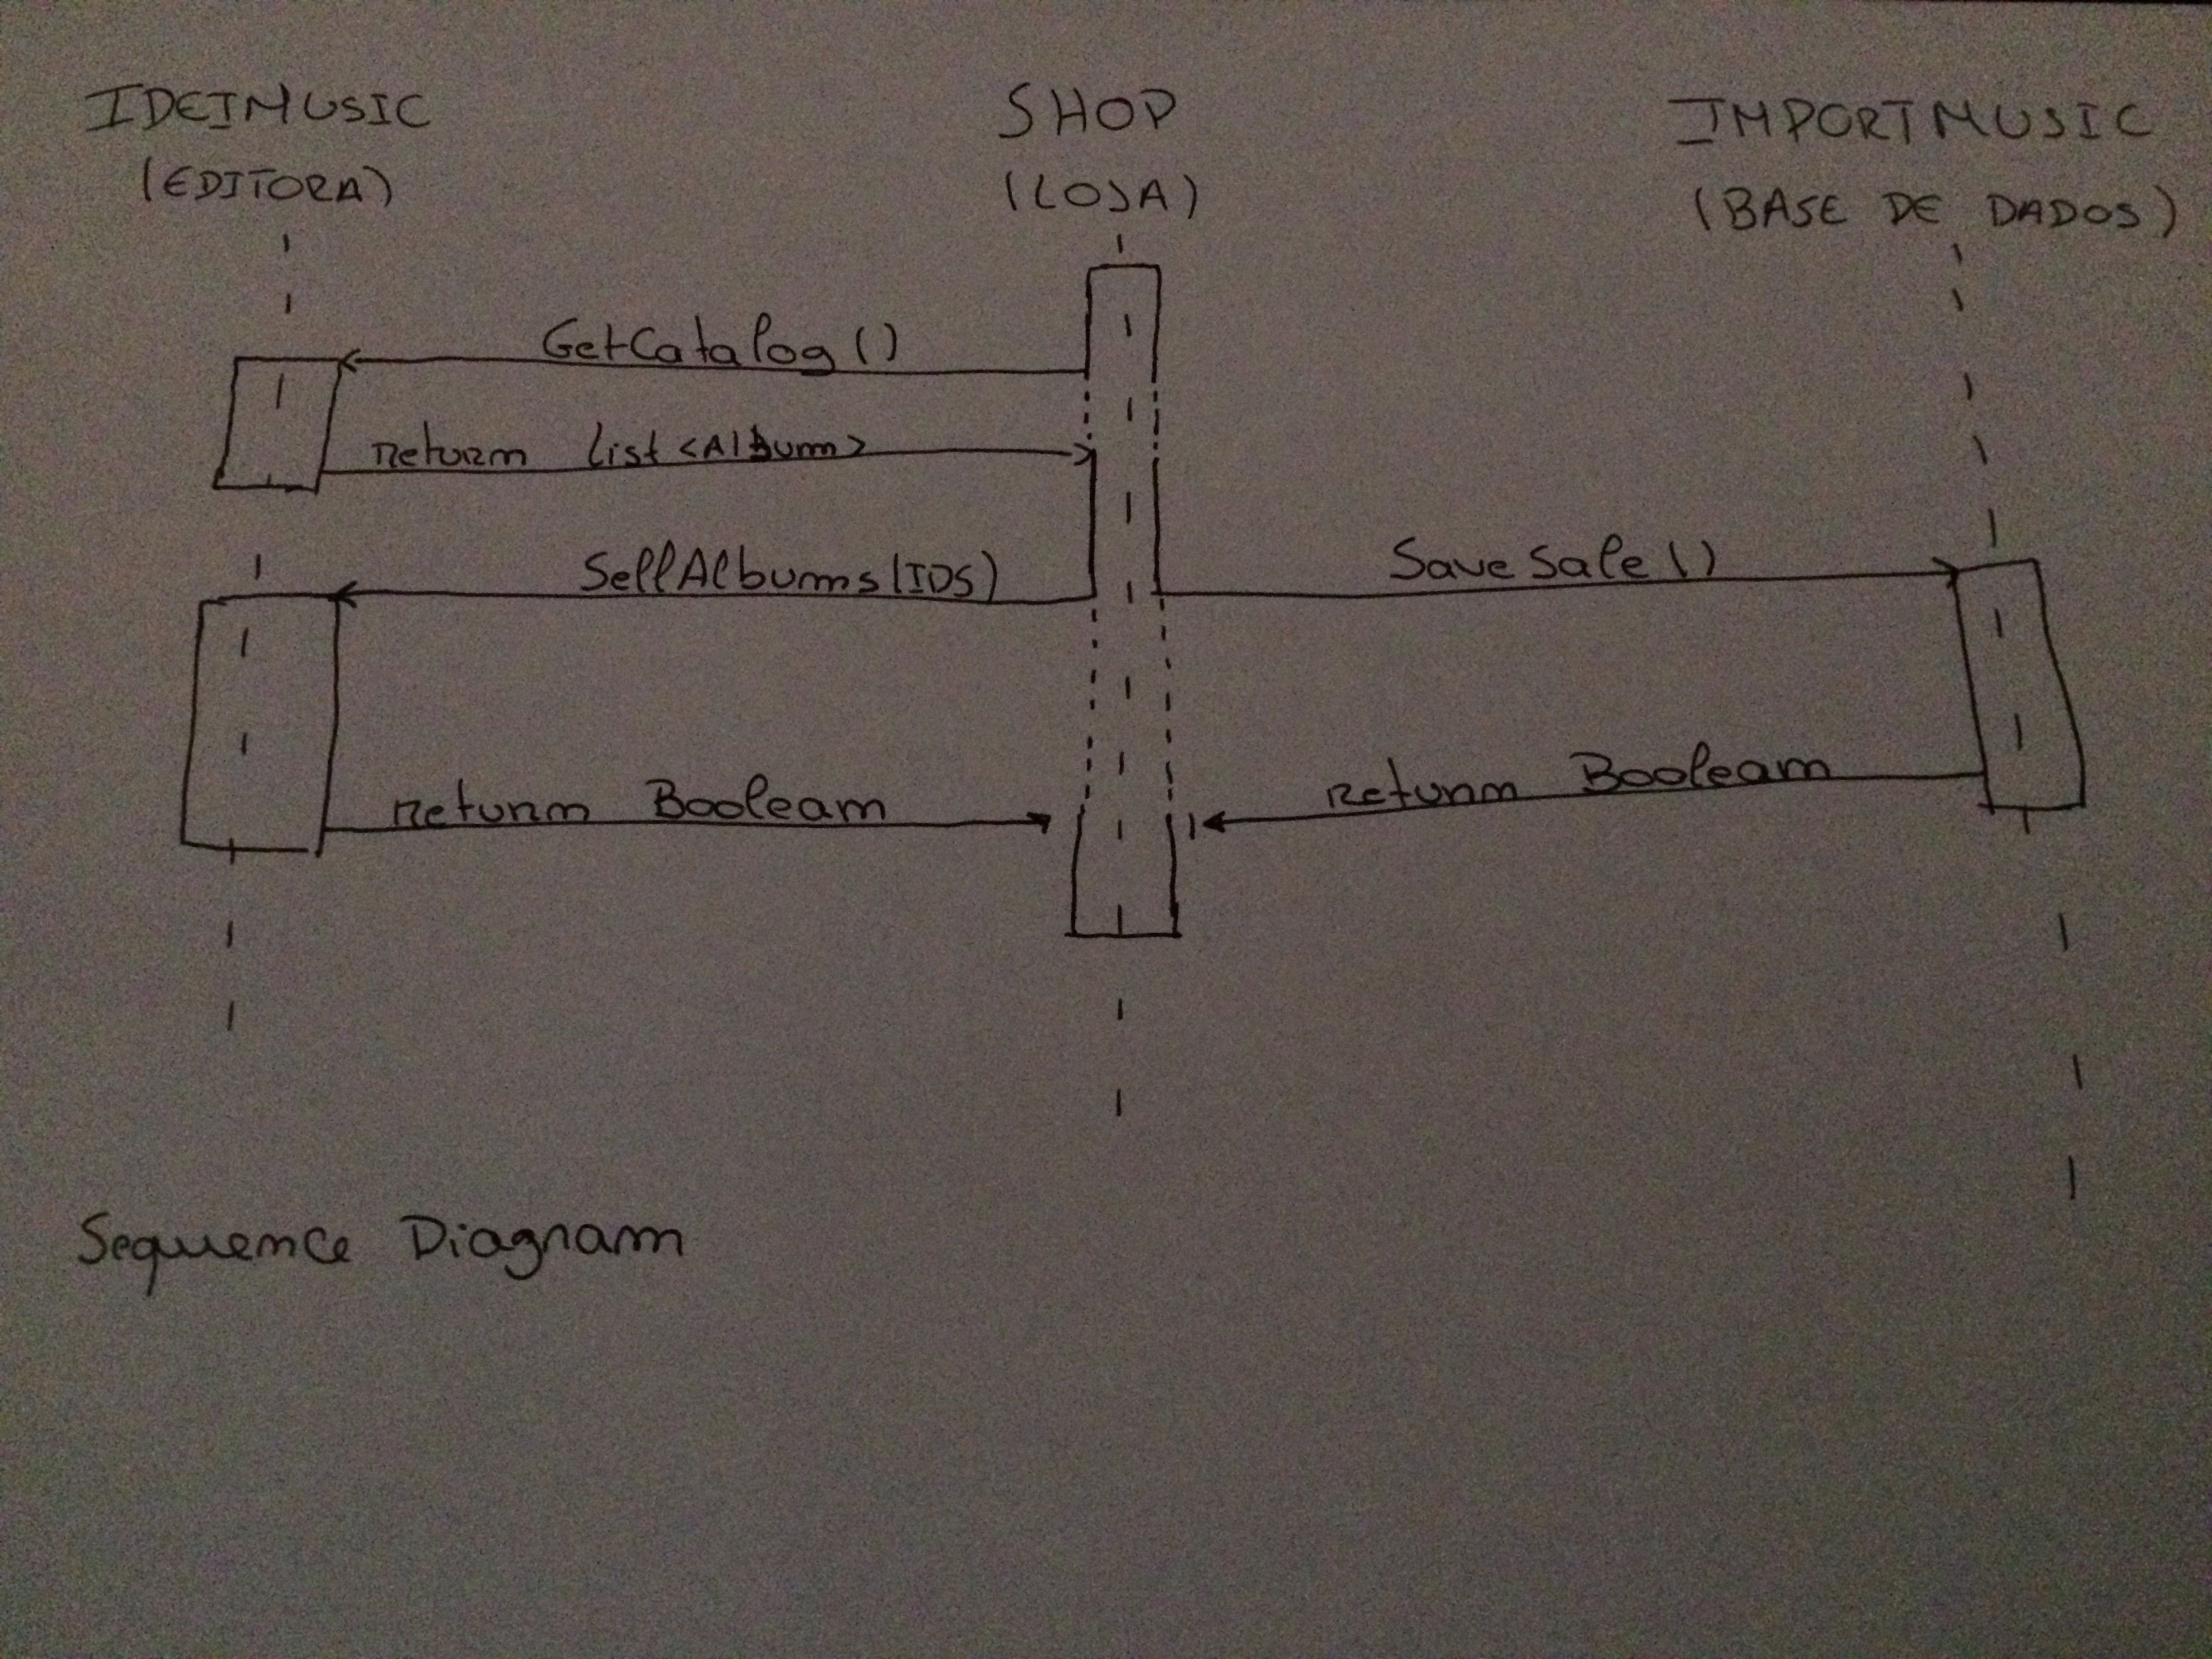 IDEIMUSIC
(EDITORA)
SHOP
(LOJA)
IMPORTMUSIC
(BASE DE DADOS)
GetCatalog()
return list<Album>
SellAlbums(IDS)
SaveSale()
return Boolean
return Boolean
Sequence Diagram